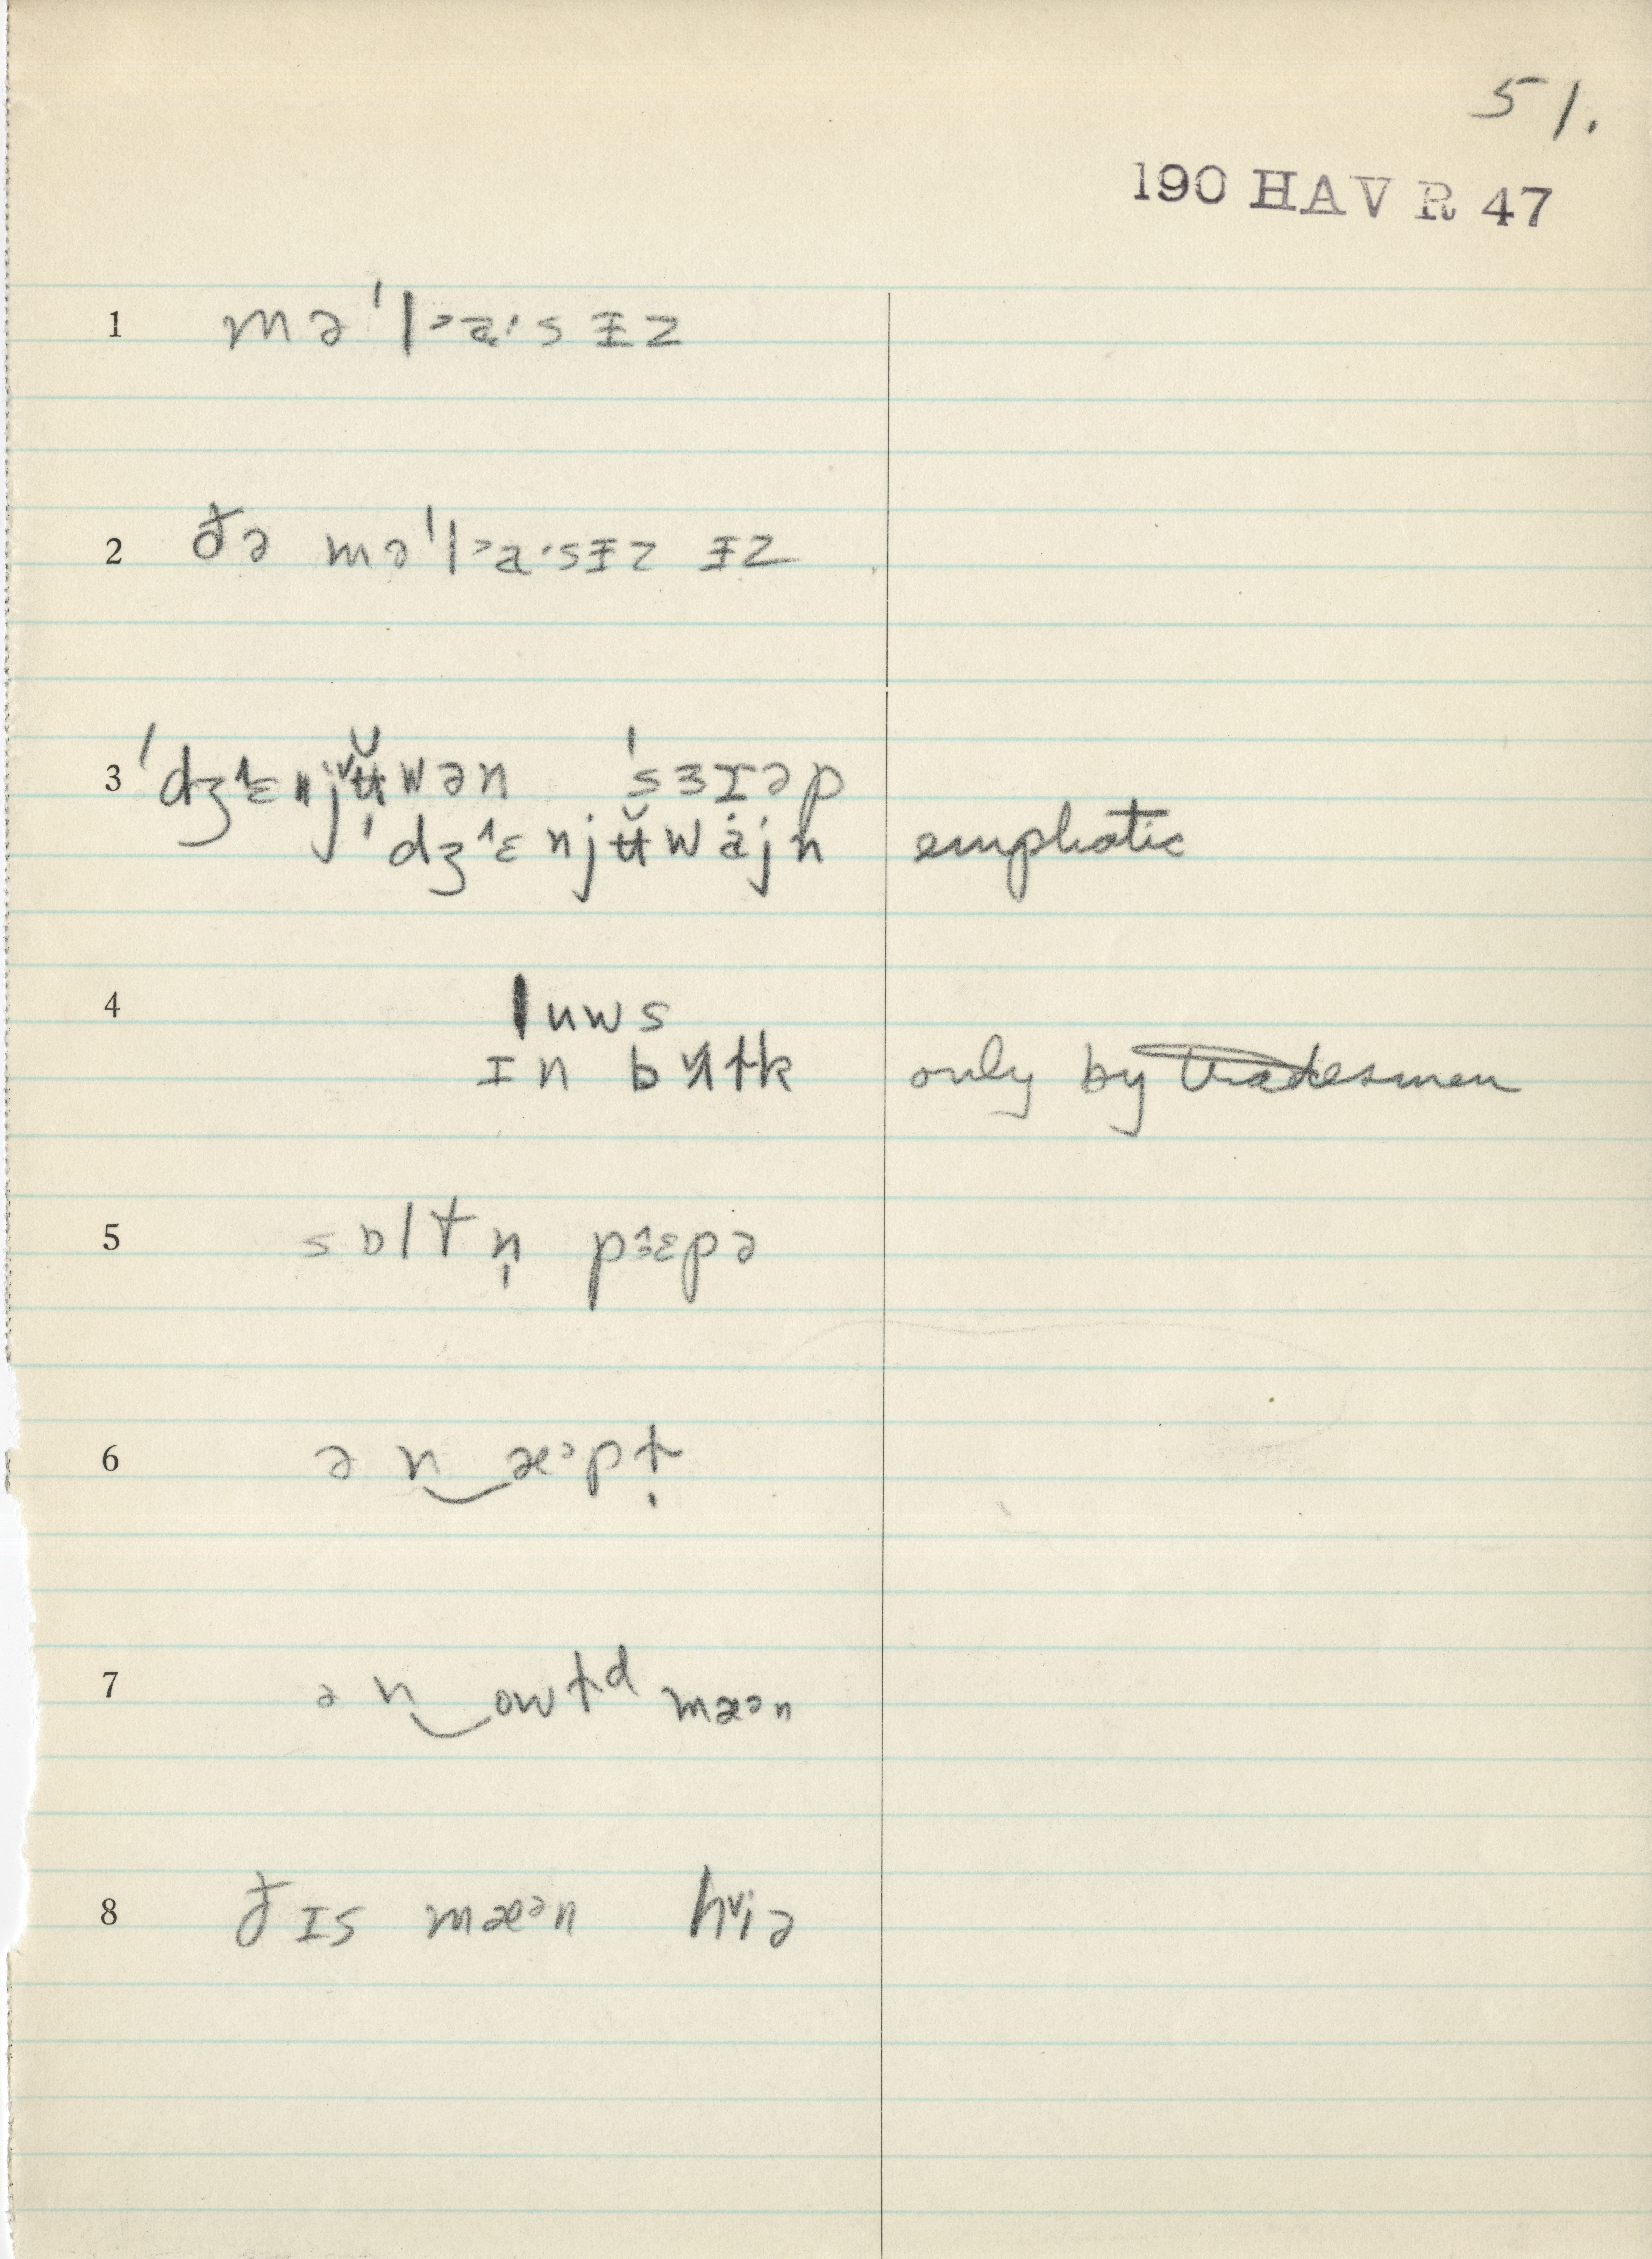 51.
190 HAVR 47
1 mə'lᵊa·sɪ̵z
2 ðə mə'lᵊa·sɪ̵z ɪ̵z
3 'dʒ˄ɛnjʉ̆wən 'sɜɪəp
'dʒ˄ɛnjʉ̆wȧjn emphatic
4 luws
ɪn only by tradesmen
5 sɒltn̩ pɜ˄ɛpə
6 ən‿æᵊpt̬
7 ən‿owt̬ᵈ mæən
8 ðɪs mæᵊn h˅iə